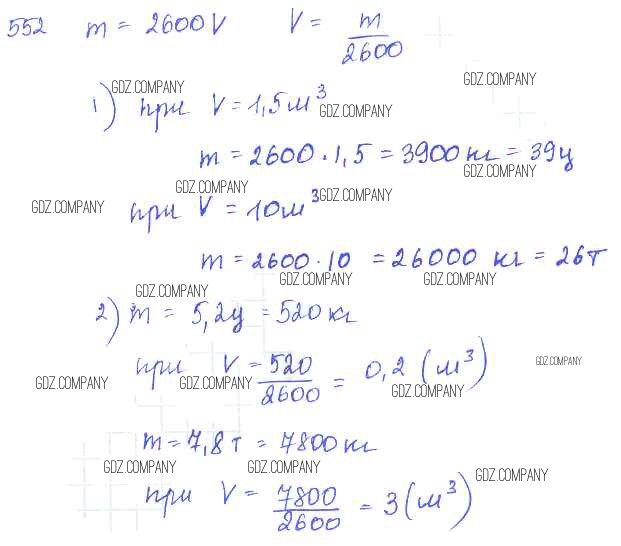 552 m = 2600V V = m/2600
GDZ.COMPANY GDZ.COMPANY
1) при V = 1,5 м³ GDZ.COMPANY
m = 2600 · 1,5 = 3900 кг = 39ц
GDZ.COMPANY GDZ.COMPANY
GDZ.COMPANY при V = 10 м³ GDZ.COMPANY
m = 2600 · 10 = 26000 кг = 26т
GDZ.COMPANY GDZ.COMPANY GDZ.COMPANY
2) m = 5,2ц = 520 кг
при V = 520/2600 = 0,2 (м³) GDZ.COMPANY
GDZ.COMPANY GDZ.COMPANY GDZ.COMPANY
m = 7,8 т = 7800 кг
GDZ.COMPANY GDZ.COMPANY GDZ.COMPANY
при V = 7800/2600 = 3 (м³)